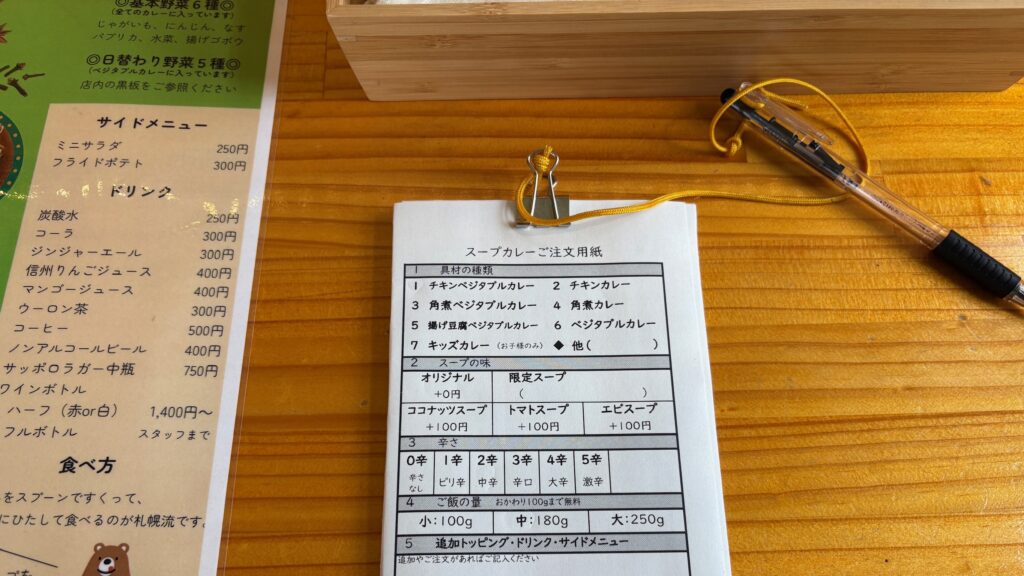 ◎基本野菜6種◎
(全てのカレーに入っています)
じゃがいも、にんじん、なす
パプリカ、水菜、揚げゴボウ
◎日替わり野菜5種◎
(ベジタブルカレーに入っています)
店内の黒板をご参照ください
サイドメニュー
ミニサラダ 250円
フライドポテト 300円
ドリンク
炭酸水 250円
コーラ 300円
ジンジャーエール 300円
信州りんごジュース 400円
マンゴージュース 400円
ウーロン茶 300円
コーヒー 500円
ノンアルコールビール 400円
サッポロラガー中瓶 750円
ワインボトル
ハーフ（赤or白） 1,400円～
フルボトル スタッフまで
食べ方
をスプーンですくって、
にひたして食べるのが札幌流です。
スープカレーご注文用紙
1 具材の種類
1 チキンベジタブルカレー 2 チキンカレー
3 角煮ベジタブルカレー 4 角煮カレー
5 揚げ豆腐ベジタブルカレー 6 ベジタブルカレー
7 キッズカレー（お子様のみ） ◆ 他( )
2 スープの味
オリジナル 限定スープ
+0円 ( )
ココナッツスープ トマトスープ エビスープ
+100円 +100円 +100円
3 辛さ
0辛 1辛 2辛 3辛 4辛 5辛
辛さなし ピリ辛 中辛 辛口 大辛 激辛
4 ご飯の量 おかわり100gまで無料
小:100g 中:180g 大:250g
5 追加トッピング・ドリンク・サイドメニュー
追加やご注文があればご記入ください